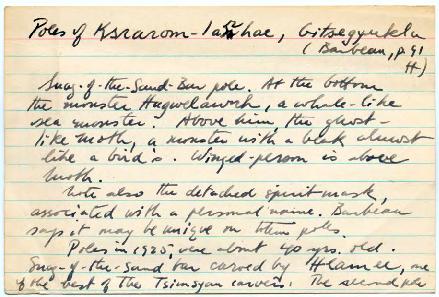 Poles of Ksrarom-larhae, Gitsegyukla
(Barbeau, p. 91
ff)
Snag-of-the-Sand-Bar pole. At the bottom
the monster Hagwelawrh, a whale-like
sea monster. Above him, the ghost-
like moth, a monster with a beak almost
like a bird's. Winged-person is above
moth.
Note also the detached spirit mask,
associated with a personal name. Barbeau
says it may be unique on these poles.
Poles in 1925, were about 40 yrs. old.
Snag-of-the-Sand bar carved by Hlamee, one
of the best of the Tsimsyan carvers. The second pole